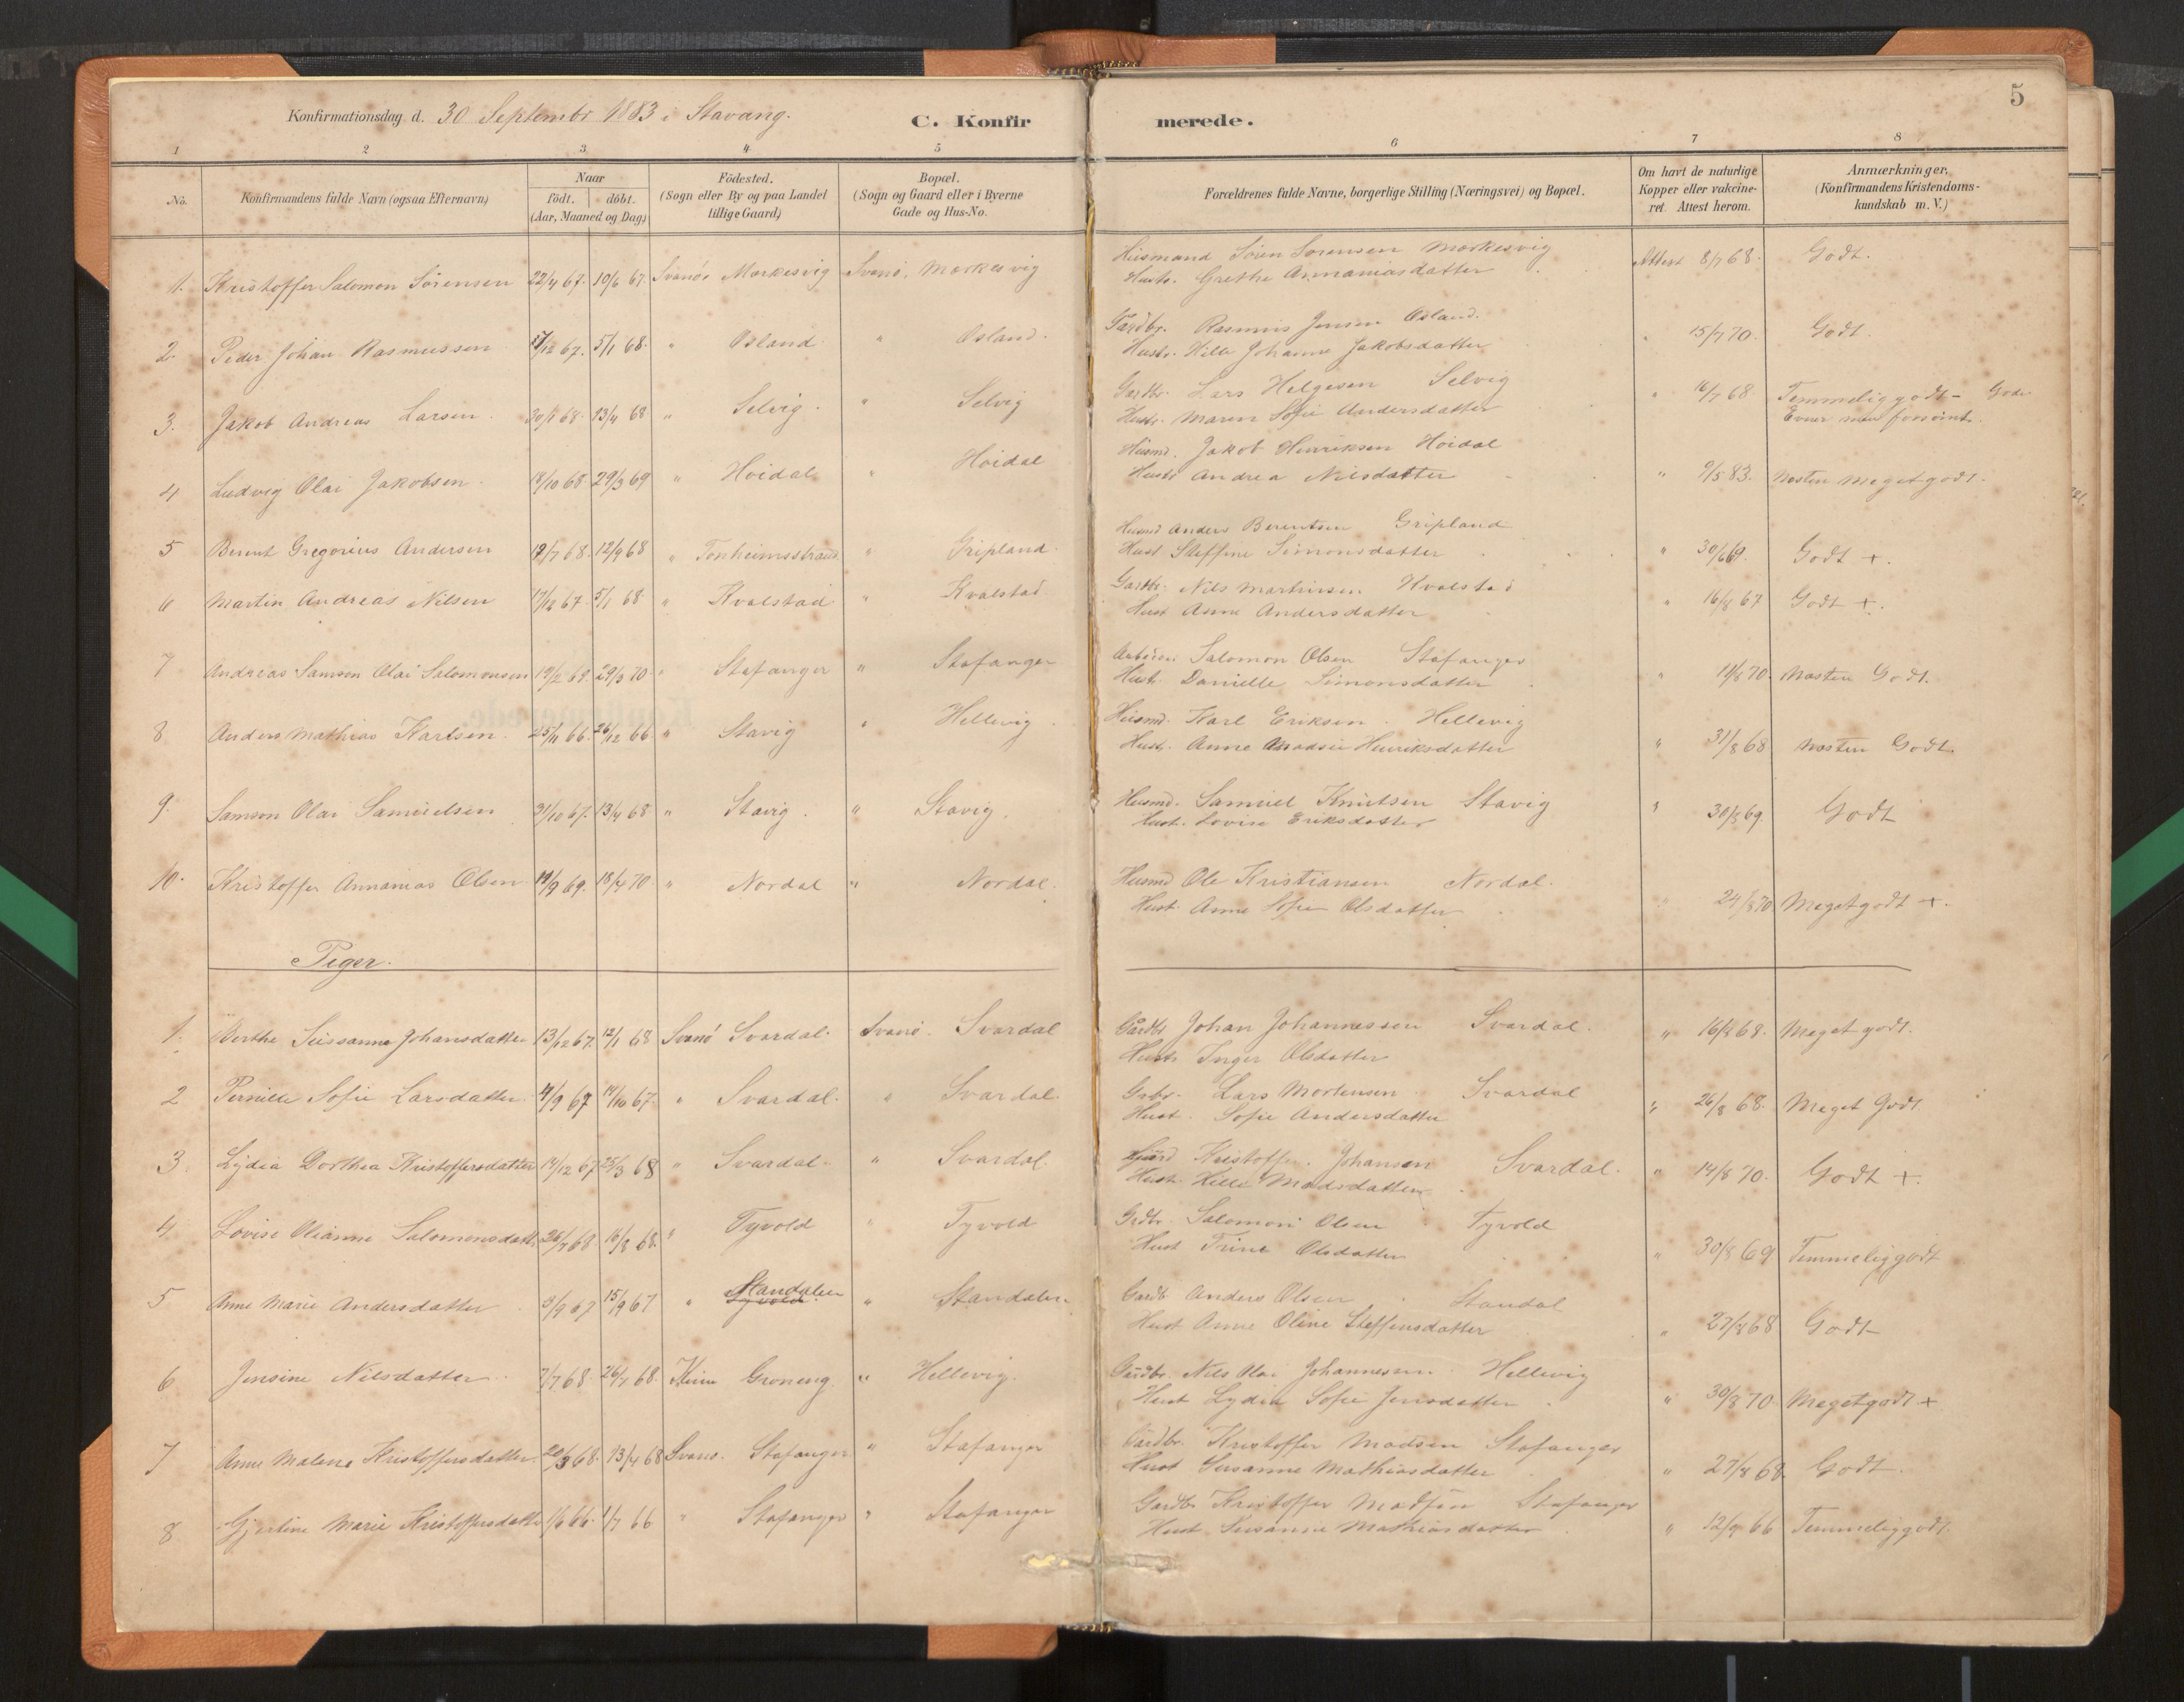 5
Konfirmationsdag d. 30 Septembr 1883 i Stavang. C. Konfirmerede.
1 2 3 4 5 6 7 8
No. Konfirmandens fulde Navn (ogsaa Efternavn) Naar födt. döbt. (Aar, Maaned og Dag) Födested. (Sogn eller By og paa Landet tillige Gaard) Bopæl. (Sogn og Gaard eller i Byerne Gade og Hus-No. Forældrenes fulde Navne, borgerlige Stilling (Næringsvei) og Bopæl. Om havt de naturlige Kopper eller vakcineret. Attest herom. Anmærkninger, (Konfirmandens Kristendomskundskab m. V.)
1. Kristoffer Salomon Sörensen 22/4 67. 10/6 67. Svanö Markesvig Svanö, Markesvig Husmand Sören Sorensen Markesvig Attest 8/7 68. Godt.
Hustr. Grethe Annaniasdatter
2. Peder Johan Rasmussen /12 67. 5/1 68. " Osland " Osland. Gardbr. Rasmus Jensen Osland. " 15/7 70. Godt.
Hustr. Hille Johanne Jakobsdatter
3. Jakob Andreas Larsen. 30/1 68. 13/4 68 " Selvig. " Selvig Gardbr. Lars Helgesen Selvig " 16/7 68. Temmeliggodt - Gode
Hustr. Maren Sofie Andersdatter Evner men forsömt.
4 Ludvig Olai Jakobsen. 18/10 68. 29/3 69 " Hoidal " Hoidal Husmd. Jakob Henriksen Hoidal " 9/5 83. Næsten Megetgodt.
Hustr Andrea Nilsdatter
5 Berent Gregorius Andersen 12/7 68. 12/9 68 " Tonheimsstrand " Gripland. Husmd Anders Berentsen Gripland " 30/6 69. Godt +.
Hust Steffine Simonsdatter
6 Martin Andreas Nilsen 17/12 67. 5/1 68. " Kvalstad " Kvalstad Gardbr. Nils Martinsen Kvalstad " 16/8 67 Godt +.
Hust Anne Andersdatter
7 Andreas Samson Olai Salomonsen 19/2 69. 29/3 70. " Stafanger " Stafanger Salomon Olsen Stafanger " 11/8 70. Næsten Godt.
Hustr. Danielle Simonsdatter
8 Anders Mathias Karlsen. 25/11 66. 26/12 66 " Stavig " Hellevig Husmd. Karl Eriksen. Hellevig " 31/8 68 Næsten Godt.
Hust. Anne Madsie Henriksdatter
9. Samson Olai Samuelsen 31/10 67. 13/4 68 " Stavig. " Stavig. Husmd. Samuel Knutsen Stavig " 30/8 69. Godt
Hust. Lovise Eriksdatter
10. Kristoffer Annanias Olsen 19/9 69. 18/4 70 " Nordal " Nordal. Husmd Ole Kristiansen Nordal. 24/8 70 Megetgodt +.
Hust. Anne Sofie Olsdatter
Piger.
1. Berthe Sussanne Johansdatter 13/12 67. 12/1 68 Svanö Svardal. Svanö. Svardal Gårdbr Johan Johannessen Svardal. " 16/8 68. Meget godt.
Hustr Inger Olsdatter
2 Pernille Sofie Larsdatter. 4/9 67 14/10 67. " Svardal. " Svardal. Grbr. Lars Mortensen. Svardal " 26/8 68. Meget Godt
Hust. Sofie Andersdatter
3. Lydia Dorthea Kristoffersdatter 14/12 67 25/3 68 " Svardal. " Svardal. Kristoffer. Johansen Svardal. " 14/8 70. Godt +.
Hustr. Hille Madsdatter
4. Lovise Olianne Salomonsdatt. 26/7 68 16/8 68. " Tyvold " Tyvold Grdbr. Salomon Olsen Tyvold " 30/8 69 Temmeliggodt
Hust Trine Olsdatter
5 Anne Marie Andersdatter 3/9 67 15/9 67 " Tyvold. Standalen " Standalen. Gardb Anders Olsen Standal " 27/8 68 Godt
Hust Anne Oline Steffensdatter
6 Jensine Nilsdatter. 7/7 68. 26/7 68. Kinn Groneng. " Hellevig. Gårdbr. Nils Olai Johannesen. Hellevig " 30/8 70. Megetgodt +
Hust Lydia Sofie Jensdatter
7 Anne Malene Kristoffersdatter. 20/3 68. 13/4 68 Svanö. Stafanger " Stafanger Gårdbr. Kristoffer Madsen Stafanger " 27/8 68. Godt.
Hust Susanne Mathiasdatter
8 Gjertine Marie Kristoffersdatte 1/6 66. 1/7 66 " Stafanger " Stafanger Gardbr Kristoffer Madsen Stafanger " 12/9 66 Temmeliggodt.
Hust Susanne Mathiasdatter